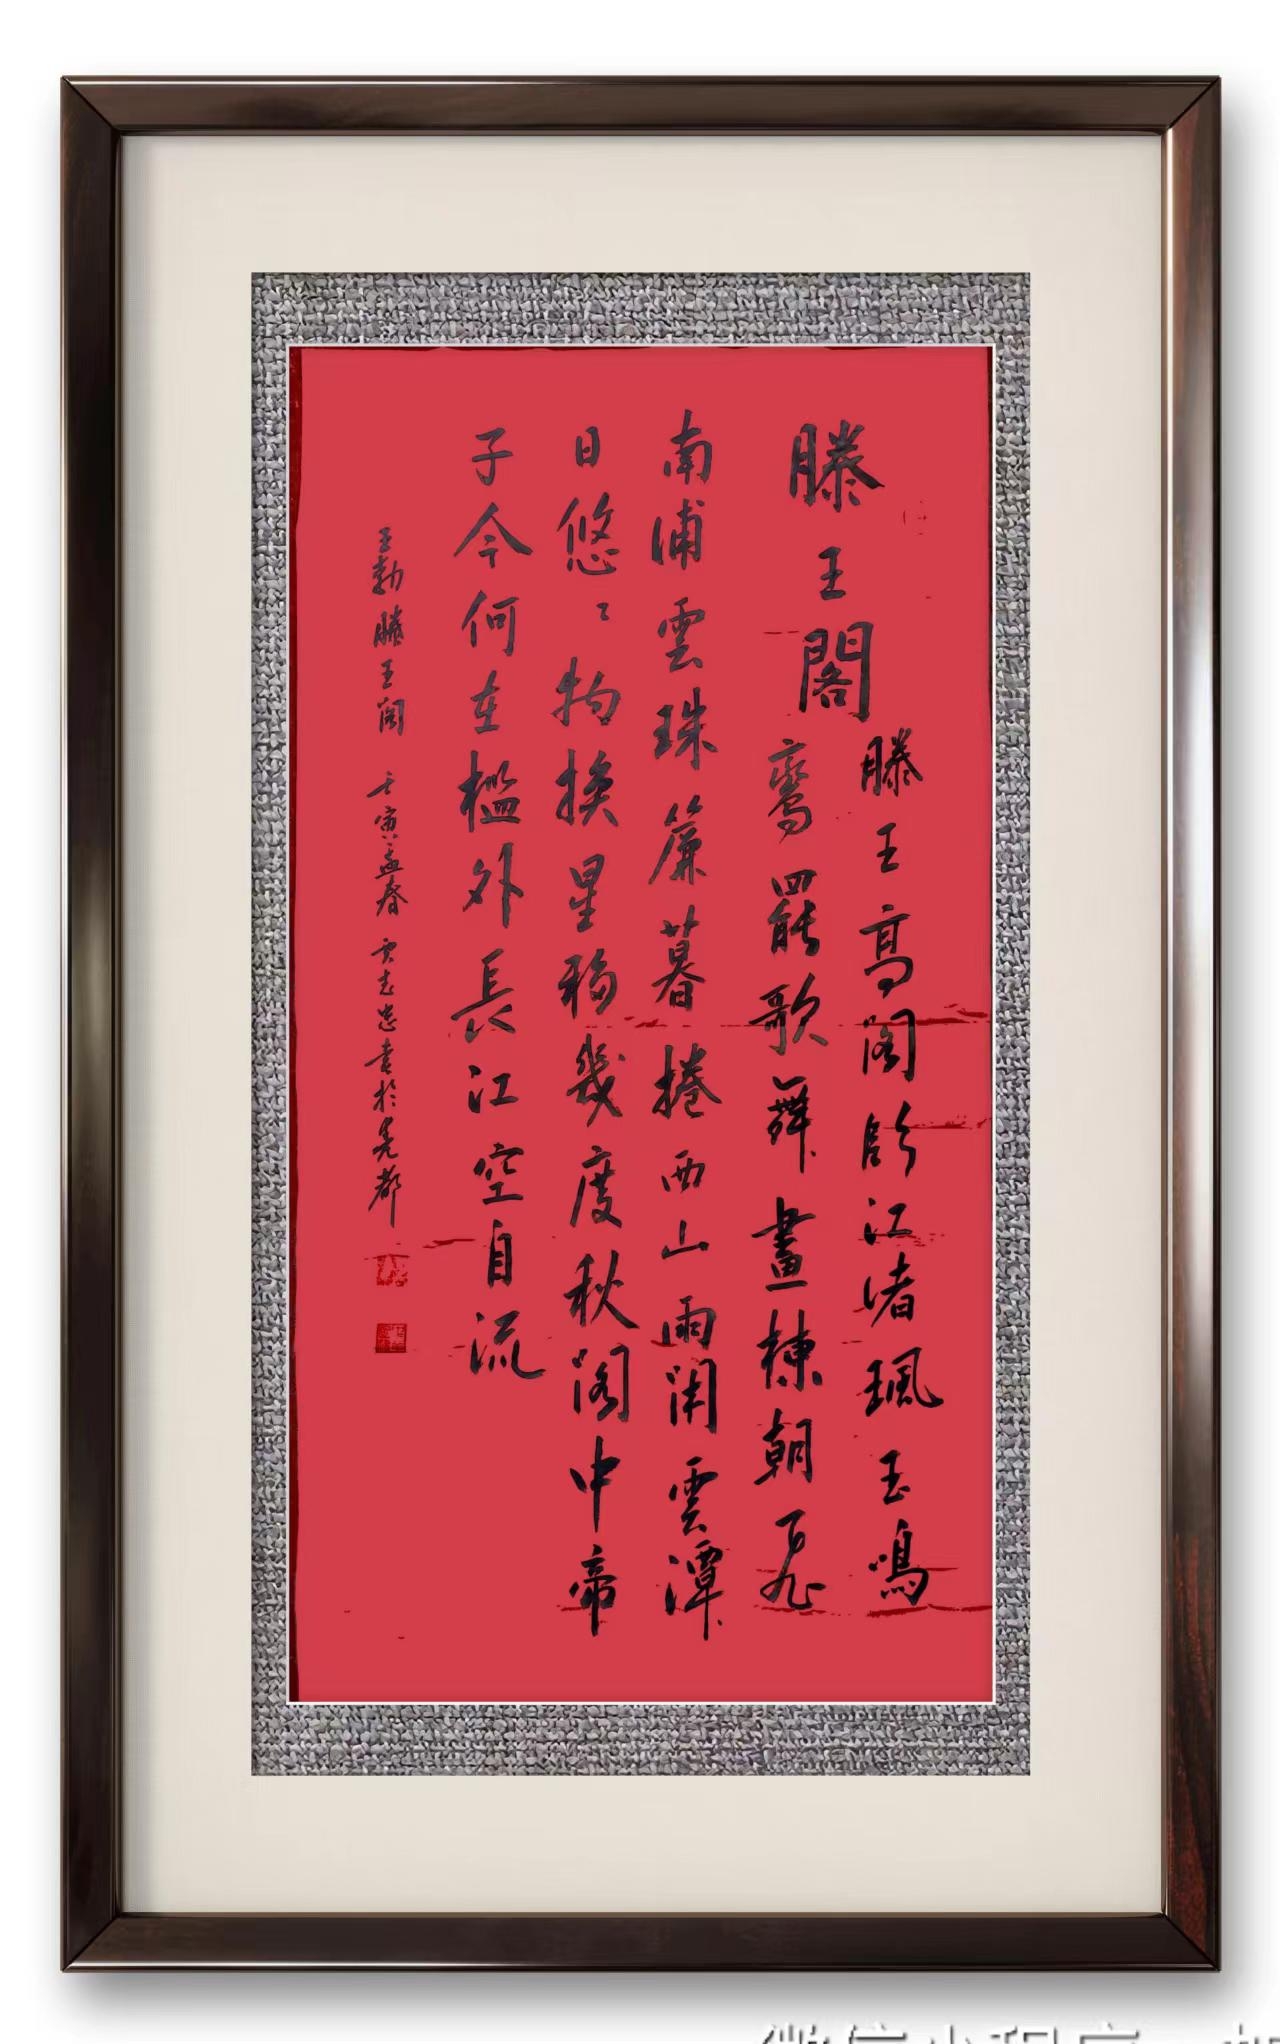 滕王閣
滕王高阁臨江渚珮玉鳴
鸞罷歌舞畫棟朝飛
南浦雲珠簾暮捲西山雨闲雲潭
日悠〻物換星移幾度秋阁中帝
子今何在檻外長江空自流
王勃滕王阁 壬寅孟春 志忠书於尧都
微信小程序